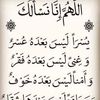 اللَّهُمَّ إِنَّا نَسْأَلُكَ
يُسْرًا لَيْسَ بَعْدَهُ عُسْرٌ
وَغِنًى لَيْسَ بَعْدَهُ فَقْرٌ
وَأَمْنًا لَيْسَ بَعْدَهُ خَوْفٌ